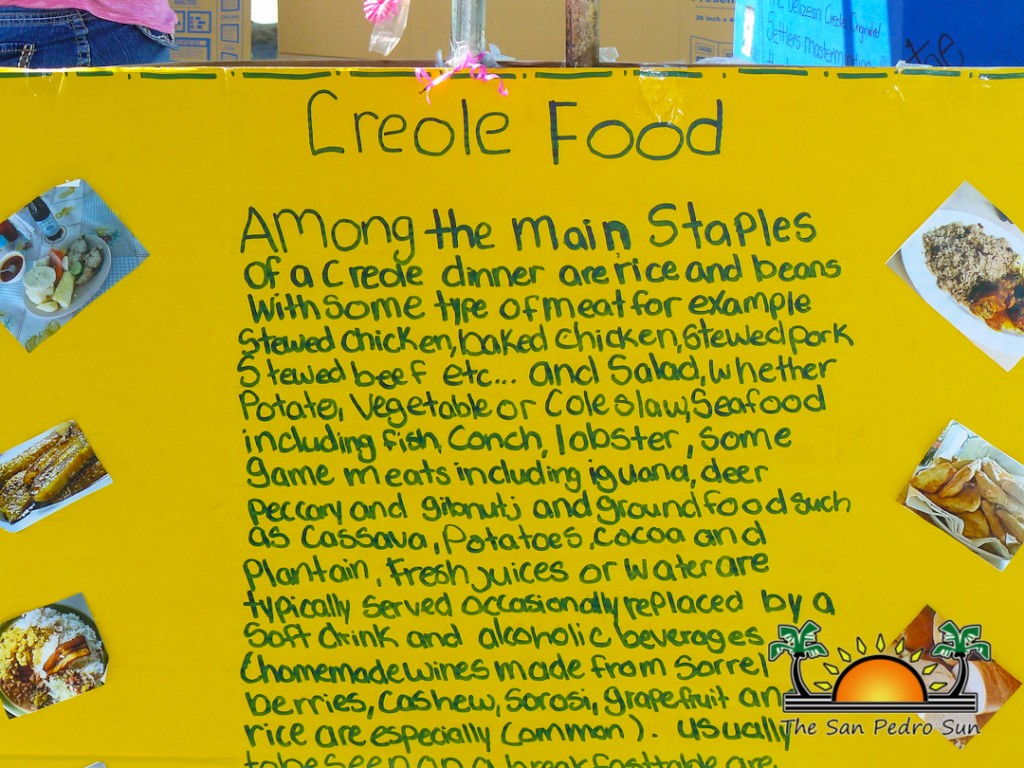 THE Belizean Creole Original
Settlers
Creole Food
Among the main Staples
Of a Creole dinner are rice and beans
With some type of meat for example
Stewed chicken, baked chicken, Stewed pork
Stewed beef etc... and Salad, whether
Potato, Vegetable or Coleslaw, Seafood
including fish, Conch, lobster, some
game meats including iguana, deer
peccary and gibnut; and ground food such
as Cassava, Potatoes, cocoa and
Plantain, Fresh juices or water are
typically served occasionally replaced by a
Soft drink and alcoholic beverages
Chomemade wines made from Sorrel
berries, Cashew, Sorosi, grapefruit an
rice are especially Common). Usually
to be seen on a breakfast table are
The San Pedro Sun